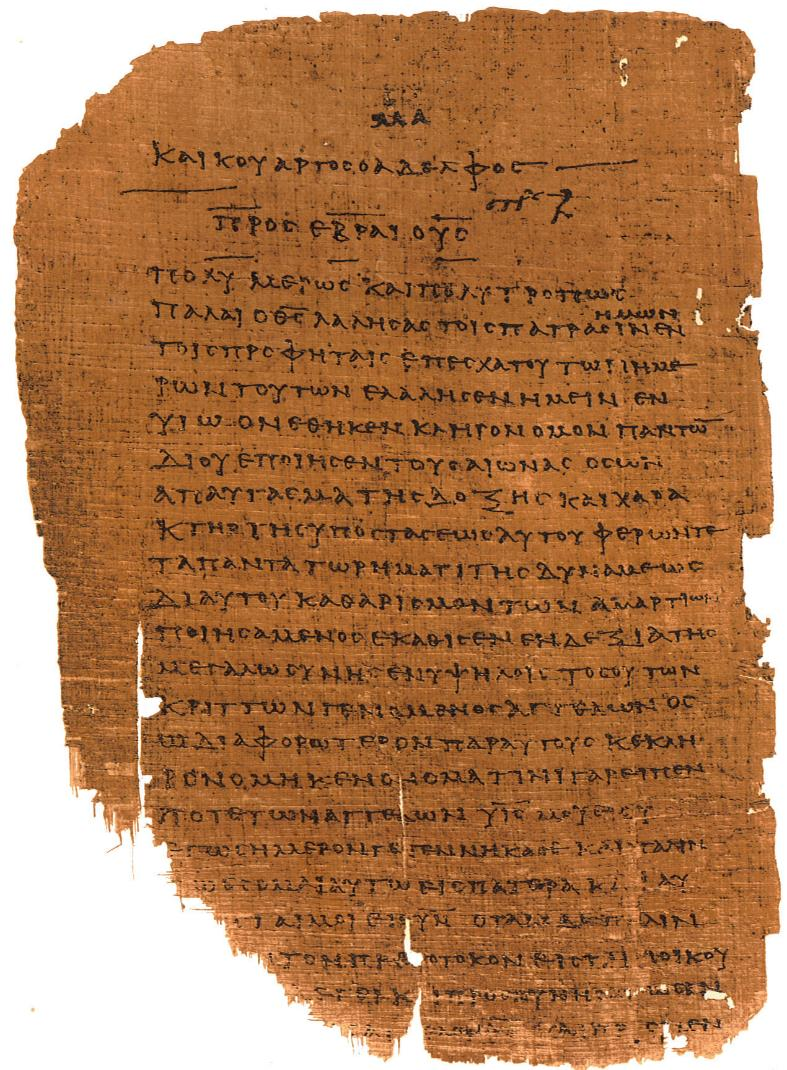 ΜΑ
ΚΑΙ ΚΟΥΑΡΤΟϹ Ο ΑΔΕΛΦΟϹ
ΠΡΟϹ ΕΒΡΑΙΟΥϹ
ΠΟΛΥΜΕΡΩϹ ΚΑΙ ΠΟΛΥΤΡΟΠΩϹ
ΗΜΩΝ
ΠΑΛΑΙ Ο Θ̅Ϲ̅ ΛΑΛΗϹΑϹ ΤΟΙϹ ΠΑΤΡΑϹΙΝ ΕΝ
ΤΟΙϹ ΠΡΟΦΗΤΑΙϹ ΕΠ ΕϹΧΑΤΟΥ ΤΩΝ ΗΜΕ
ΡΩΝ ΤΟΥΤΩΝ ΕΛΑΛΗϹΕΝ ΗΜΕΙΝ ΕΝ
ΥΙΩ ΟΝ ΕΘΗΚΕΝ ΚΛΗΡΟΝΟΜΟΝ ΠΑΝΤΩ̅
ΔΙ ΟΥ ΕΠΟΙΗϹΕΝ ΤΟΥϹ ΑΙΩΝΑϹ ΟϹ ΩΝ
ΑΠΑΥΓΑϹΜΑ ΤΗϹ ΔΟΞΗϹ ΚΑΙ ΧΑΡΑ
ΚΤΗΡ ΤΗϹ ΥΠΟϹΤΑϹΕΩϹ ΑΥΤΟΥ ΦΕΡΩΝ ΤΕ
ΤΑ ΠΑΝΤΑ ΤΩ ΡΗΜΑΤΙ ΤΗϹ ΔΥΝΑΜΕΩϹ
ΔΙ ΑΥΤΟΥ ΚΑΘΑΡΙϹΜΟΝ ΤΩΝ ΑΜΑΡΤΙΩΝ
ΠΟΙΗϹΑΜΕΝΟϹ ΕΚΑΘΙϹΕΝ ΕΝ ΔΕΞΙΑ ΤΗϹ
ΜΕΓΑΛΩϹΥΝΗϹ ΕΝ ΥΨΗΛΟΙϹ ΤΟϹΟΥΤΩΝ
ΚΡΙΤΤΩΝ ΓΕΝΟΜΕΝΟϹ ΑΓΓΕΛΩΝ ΟϹ
Ω ΔΙΑΦΟΡΩΤΕΡΟΝ ΠΑΡ ΑΥΤΟΥϹ ΚΕΚΛΗ
ΡΟΝΟΜΗΚΕΝ ΟΝΟΜΑ ΤΙΝΙ ΓΑΡ ΕΙΠΕΝ
ΠΟΤΕ ΤΩΝ ΑΓΓΕΛΩΝ Υ̅Ι̅Ϲ̅ ΜΟΥ ΕΙ ϹΥ
ΕΓΩ ϹΗΜΕΡΟΝ ΓΕΓΕΝΝΗΚΑ ϹΕ ΚΑΙ ΠΑΛΙΝ
ΕϹΟΜΑΙ ΑΥΤΩ ΕΙϹ ΠΑΤΕΡΑ ΚΑΙ ΑΥ
ΕϹΤΑΙ ΜΟΙ ΕΙϹ Υ̅Ν̅ ΟΤΑΝ ΔΕ ΠΑΛΙΝ
ΤΟΝ ΠΡΩΤΟΤΟΚΟΝ ΕΙϹ ΤΗΝ ΟΙΚΟΥ
ΛΕΓΕΙ ΚΑΙ ΠΡΟϹΚΥΝΗϹΑΤΩϹΑΝ